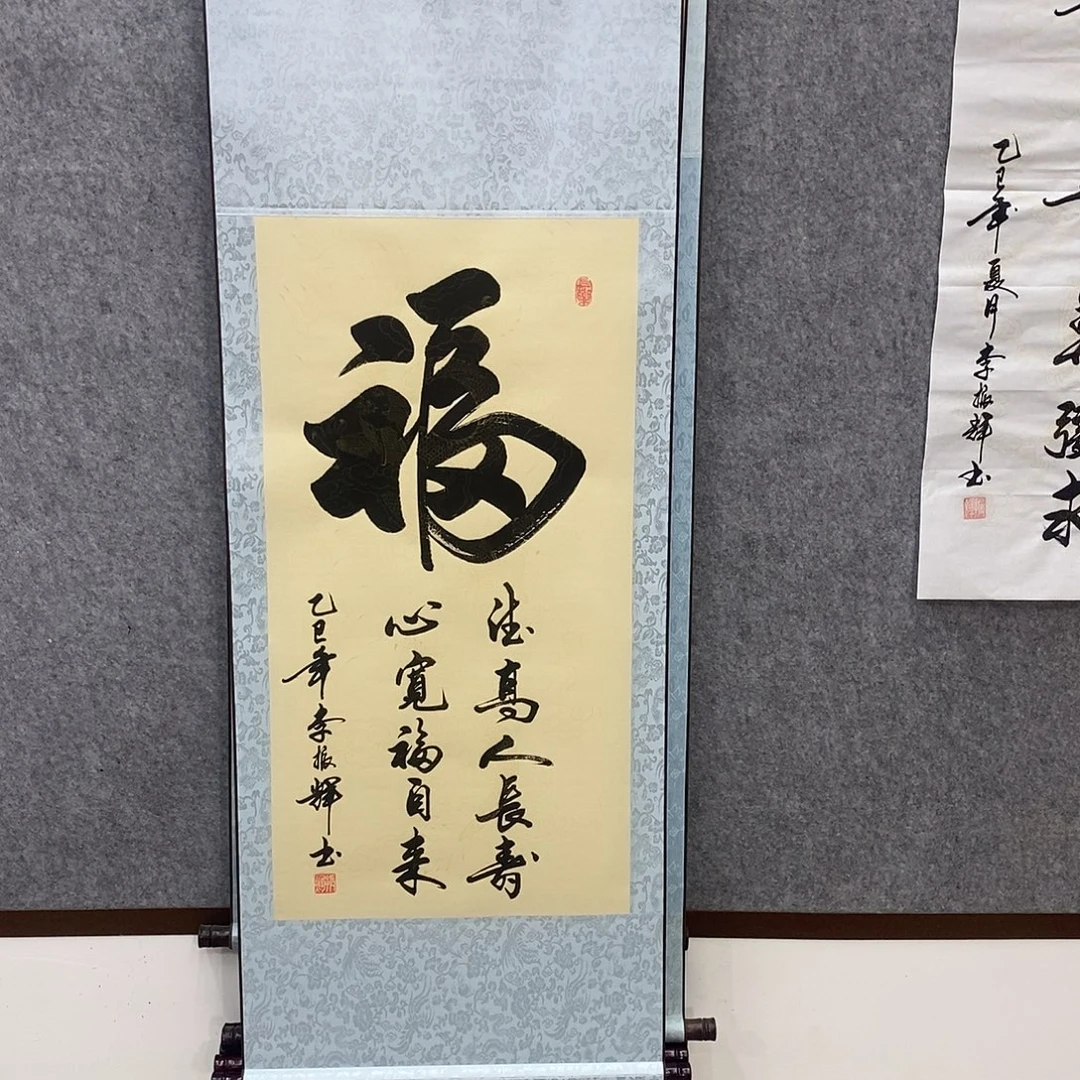 福
德高人長壽
心寬福自来
乙巳年李振輝书
乙巳年夏月李振輝书